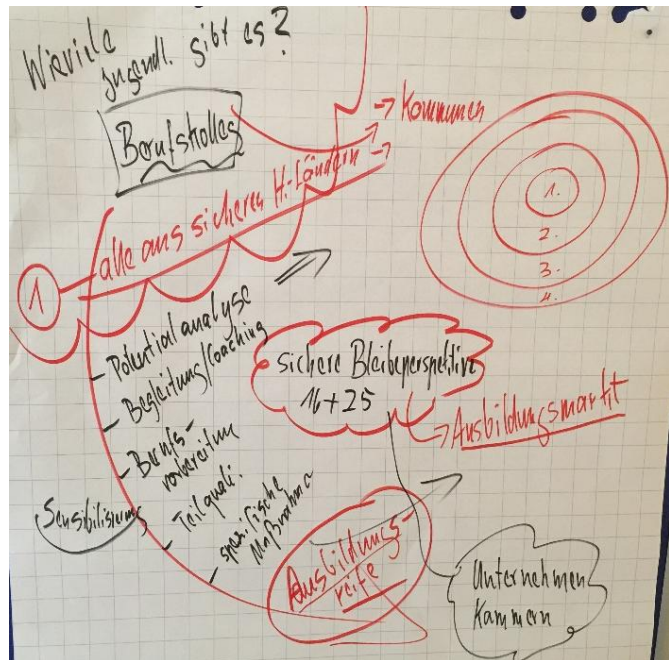 Wieviele
Jugendl. gibt es?
Berufskolleg
→ Kommunen
- alle aus sicheren H.-Ländern →
1
1.
2.
3.
4.
- Potentialanalyse
- Begleitung/Coaching
- Berufs-
vorbereitung
- Teilquali.
- spezifische
Maßnahme
Sensibilisierung
sichere Bleibeperspektive
16+25
→ Ausbildungsmarkt
Ausbildungs-
reife
Unternehmen
Kammern